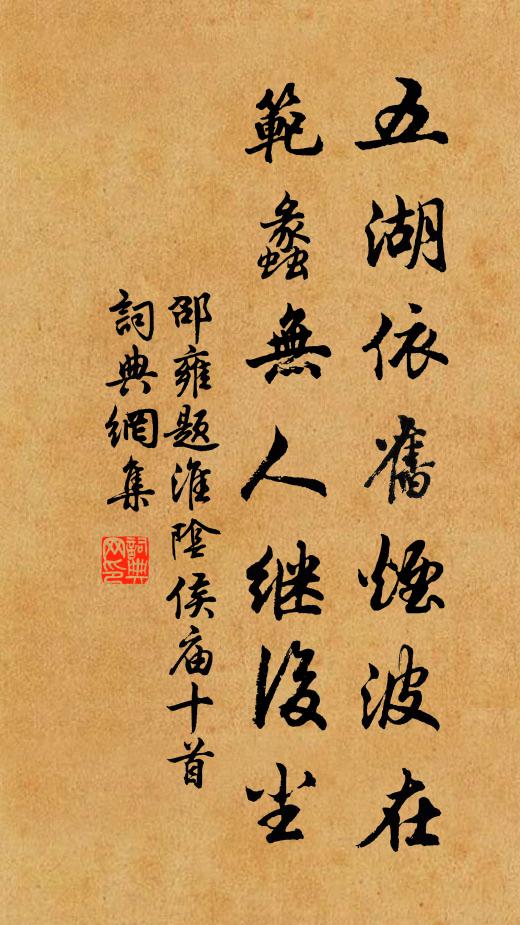 五湖依舊煙波在
範蠡無人继後尘
邵雍题淮陰侯庙十首
詞典網集
詞典网印